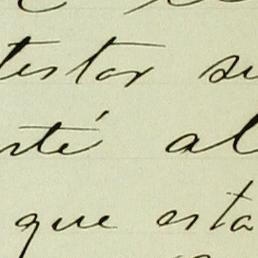 testar su
rté al
que esta